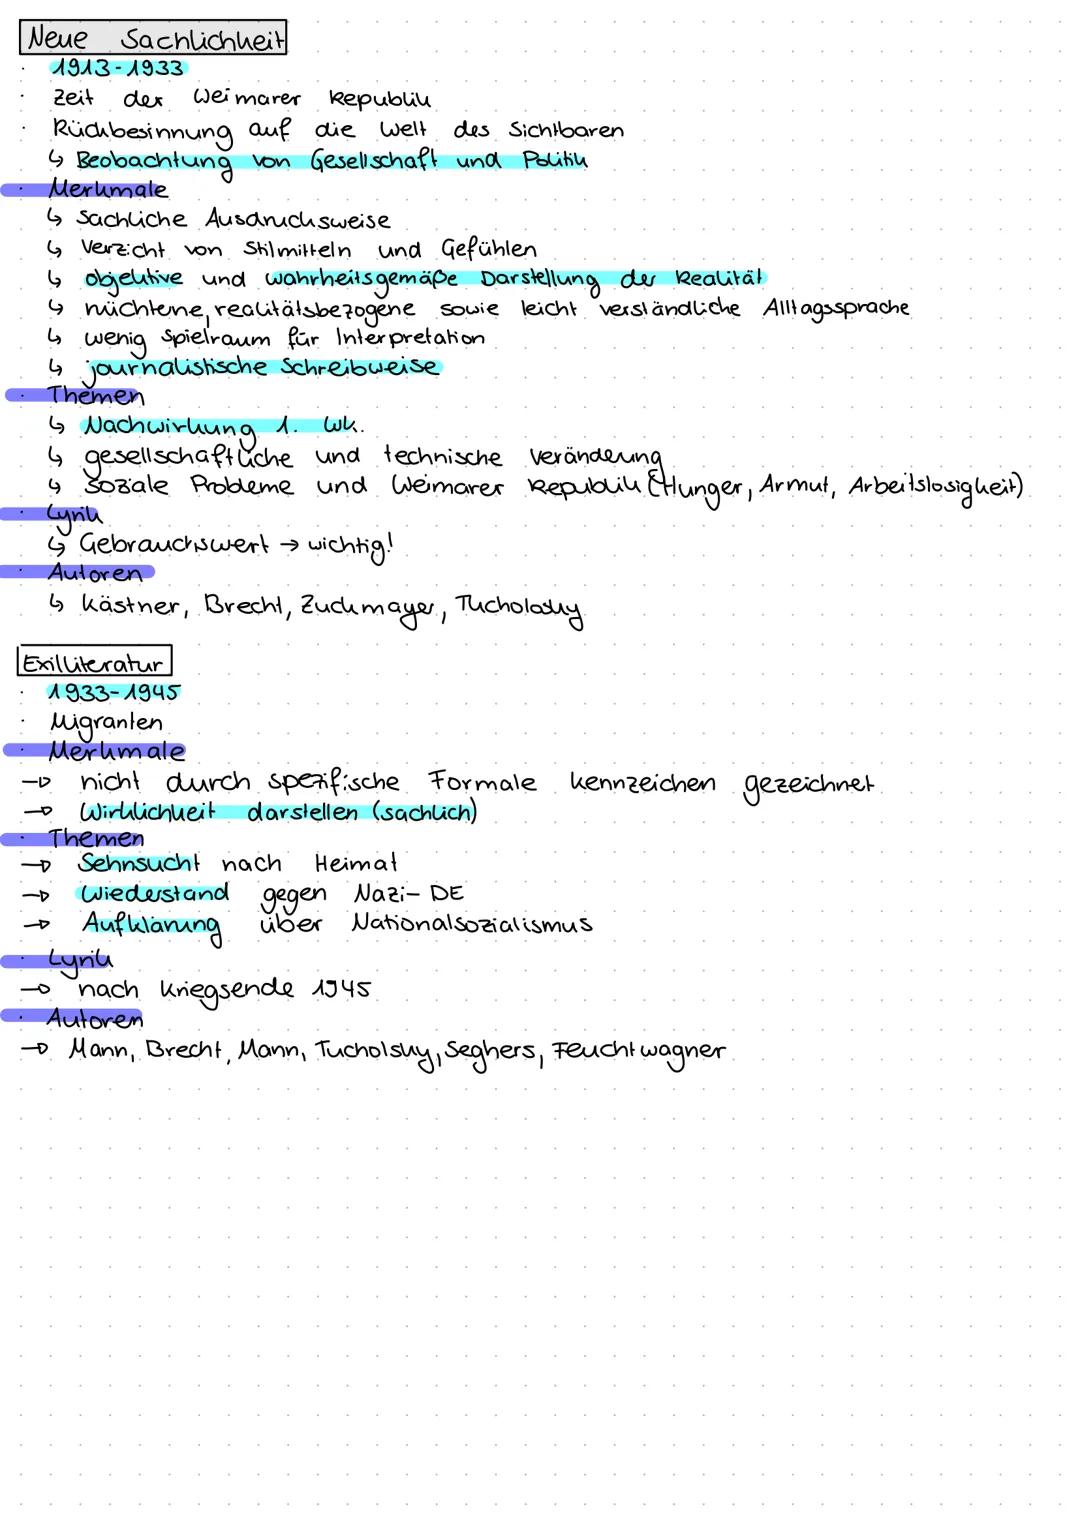 Neue Sachlichkeit
· 1913-1933
· Zeit der Weimarer Republik
· Rückbesinnung auf die Welt des Sichtbaren
↳ Beobachtung von Gesellschaft und Politik
· Merkmale
↳ sachliche Ausdrucksweise
↳ Verzicht von Stilmitteln und Gefühlen
↳ objektive und wahrheitsgemäße Darstellung der Realität
↳ nüchterne, realitätsbezogene sowie leicht verständliche Alltagssprache
↳ wenig Spielraum für Interpretation
↳ journalistische Schreibweise
· Themen
↳ Nachwirkung 1. WK.
↳ gesellschaftliche und technische Veränderung
↳ soziale Probleme und Weimarer Republik (Hunger, Armut, Arbeitslosigkeit)
· Lyrik
↳ Gebrauchswert → wichtig!
· Autoren
↳ Kästner, Brecht, Zuckmayer, Tucholosky
Exilliteratur
· 1933-1945
· Migranten
· Merkmale
→ nicht durch spezifische Formale kennzeichen gezeichnet
→ Wirklichkeit darstellen (sachlich)
· Themen
→ Sehnsucht nach Heimat
→ Wiederstand gegen Nazi-DE
→ Aufklärung über Nationalsozialismus
· Lyrik
→ nach Kriegsende 1945
· Autoren
→ Mann, Brecht, Mann, Tucholsky, Seghers, Feuchtwagner